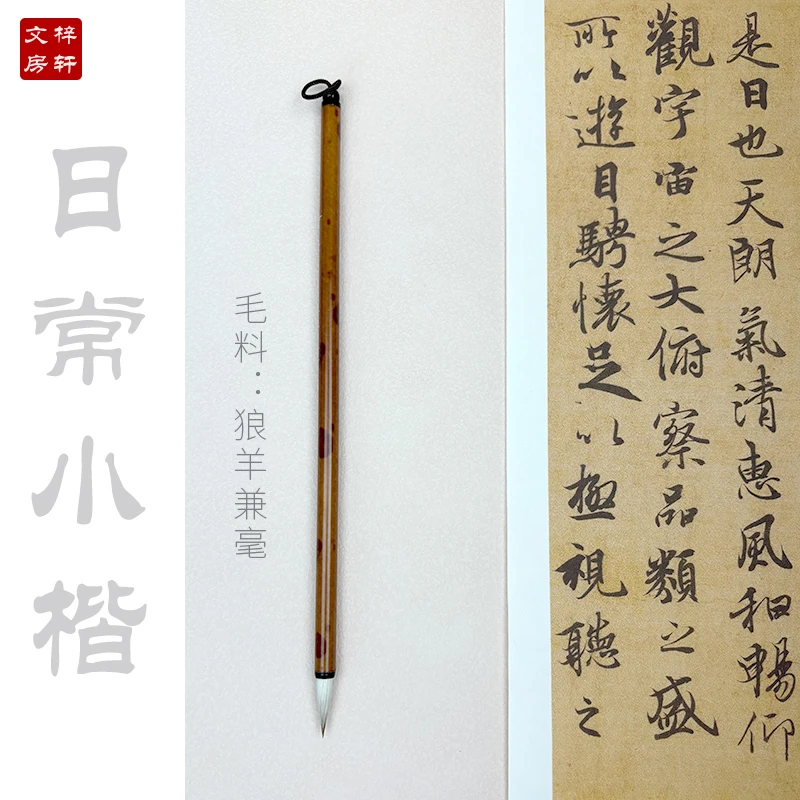 梓轩
文房
日常小楷
毛料：狼羊兼毫
是日也天朗氣清惠風和暢仰
觀宇宙之大俯察品類之盛
所以遊目騁懷足以極視聽之